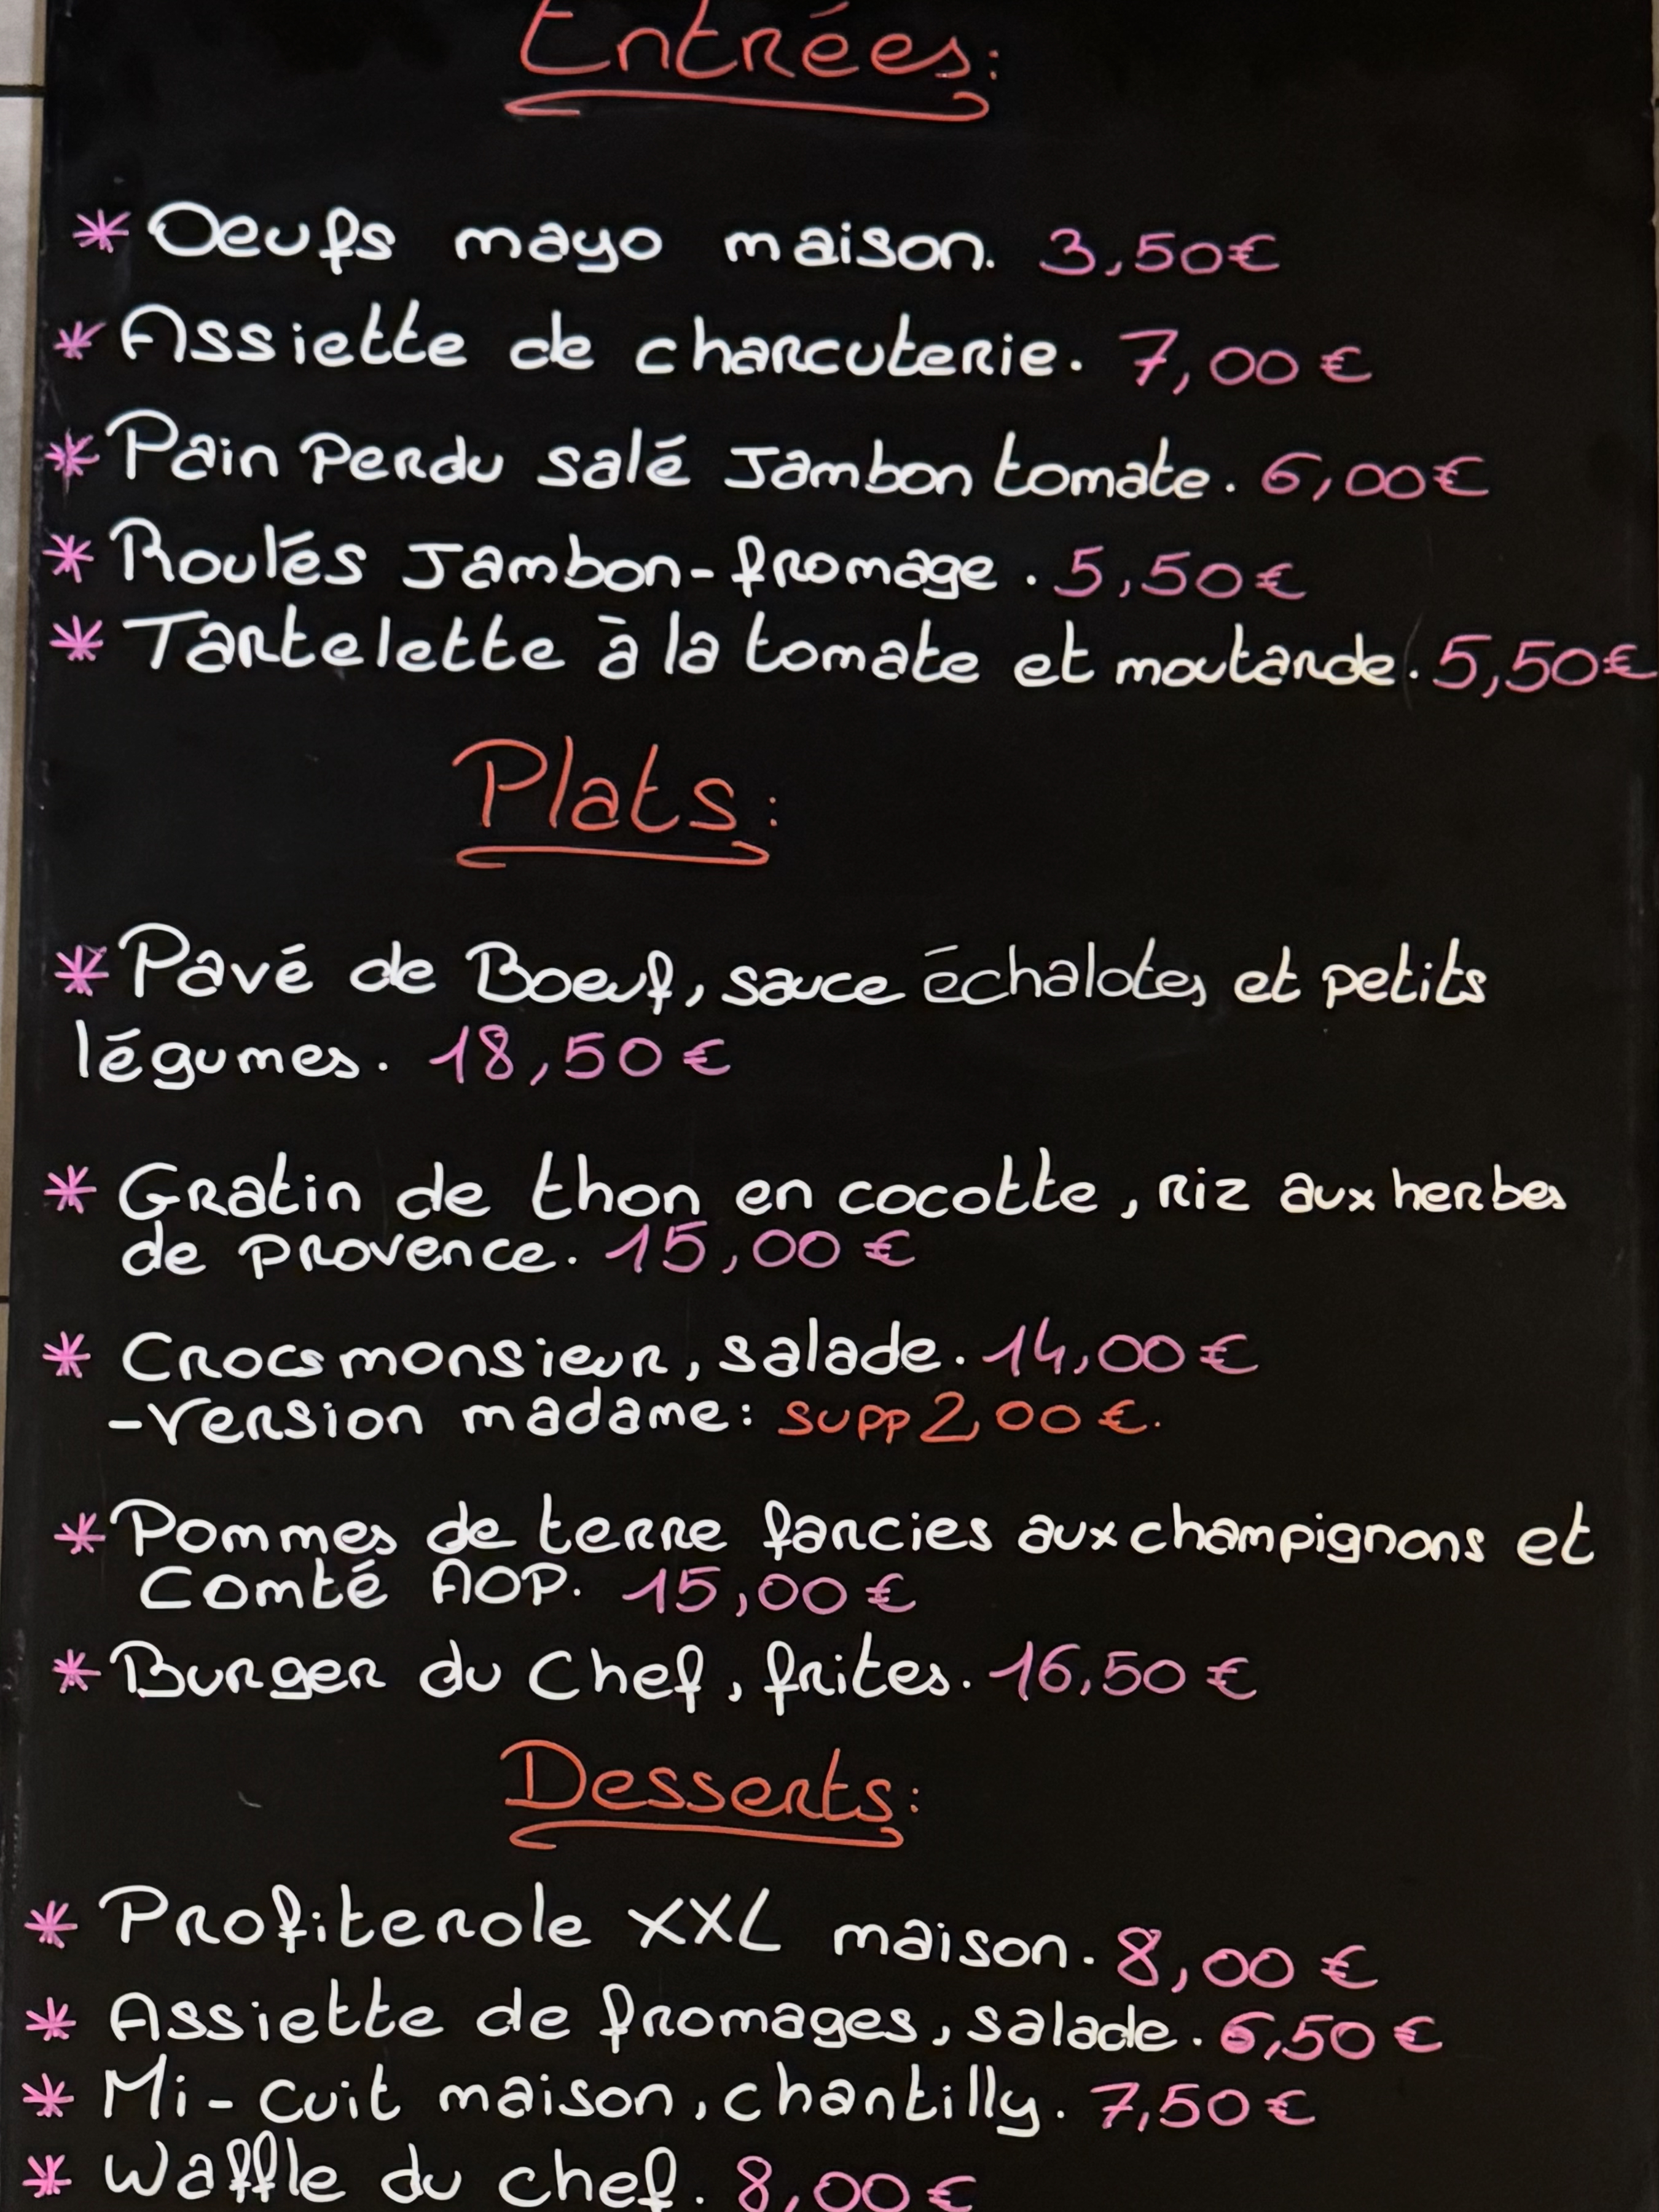 Entrées:
* Oeufs mayo maison. 3,50€
* Assiette de charcuterie. 7,00 €
* Pain Perdu salé Jambon tomate. 6,00€
* Roulés Jambon-fromage. 5,50€
* Tartelette à la tomate et moutarde. 5,50€
Plats:
* Pavé de Boeuf, sauce échalotes et petits
légumes. 18,50€
* Gratin de thon en cocotte, riz aux herbes
de provence. 15,00 €
* Crocs monsieur, salade. 14,00 €
-Version madame: supp 2,00 €.
* Pommes de terre farcies aux champignons et
Comté AOP. 15,00 €
* Burger du Chef, frites. 16,50 €
Desserts:
* Profiterole XXL maison. 8,00 €
* Assiette de fromages, salade. 6,50 €
* Mi-cuit maison, chantilly. 7,50 €
* Waffle du chef. 8,00€